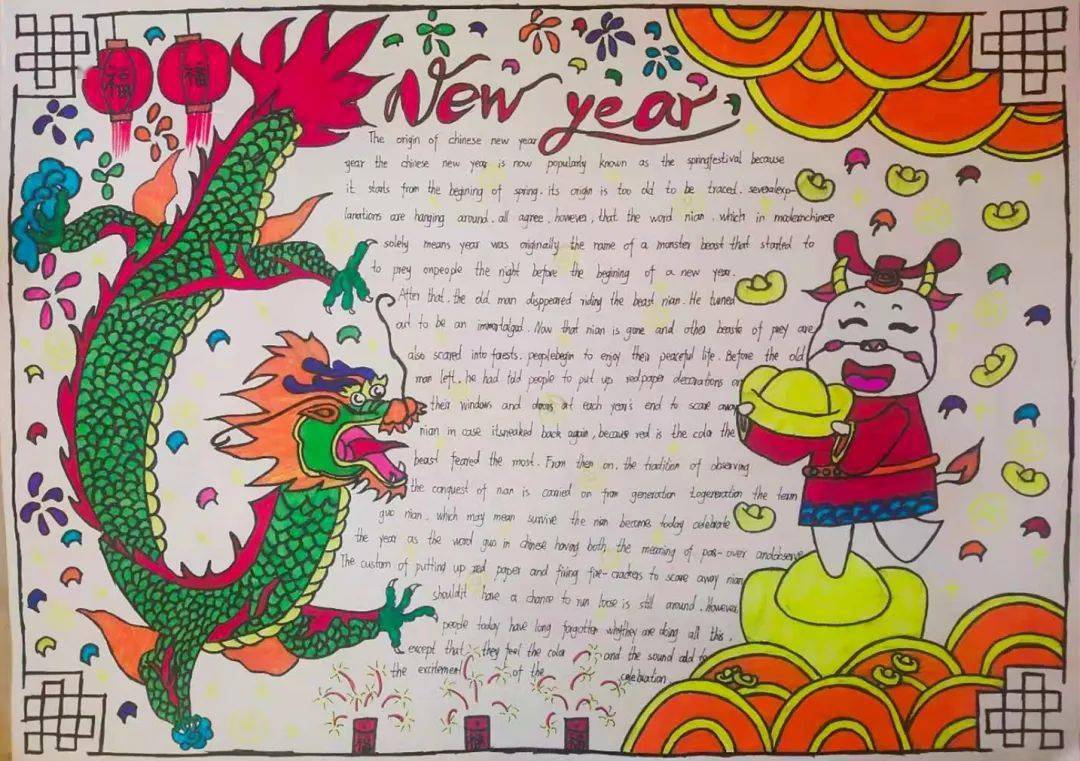 福
福
New year
The origin of chinese new year
year the chinese new year is now popularly known as the springfestival because
it starts from the begining of spring. its origin is too old to be traced. severalexp-
lanations are hanging around. all agree, however, that the word nian, which in modernchinese
solely means year was originally the name of a monster beast that started to
to prey onpeople the night before the begining of a new year.
After that, the old man disppeared riding the beast nian. He turned
out to be an immortalgod. Now that nian is gone and other beasts of prey are
also scared into forests. peoplebegin to enjoy their peaceful life. Before the old
man left, he had told people to put up redpaper decorations on
their windows and doors at each year's end to scare away
nian in case itsneaked back again, because red is the color the
beast feared the most. From then on, the tradition of observing
the conquest of nian is carried on from generation togeneration the term
guo nian, which may mean survive the nian become today celebrate
the year as the word guo in chinese having both the meaning of pass-over andobserve
The custom of putting up red paper and firing fire-crackers to scare away nian
shouldit have a chance to run loose is still around. However,
people today have long forgotten whythey are doing all this,
except that they feel the color and the sound add to
the excitement of the celebration
福
福
福